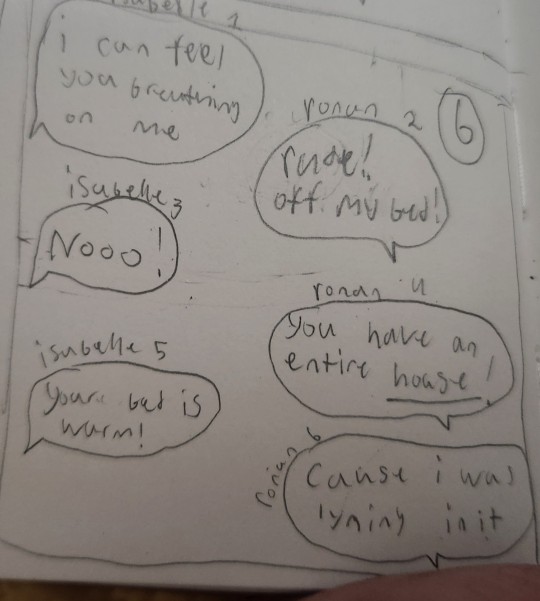 isabelle 1
i can feel
you breathing
on me
ronan 2
6
rude!
off my bed!
isabelle 3
Nooo!
ronan 4
You have an
entire house!
isabelle 5
Youre bed is
warm!
ronan 6
Cause i was
lyning in it